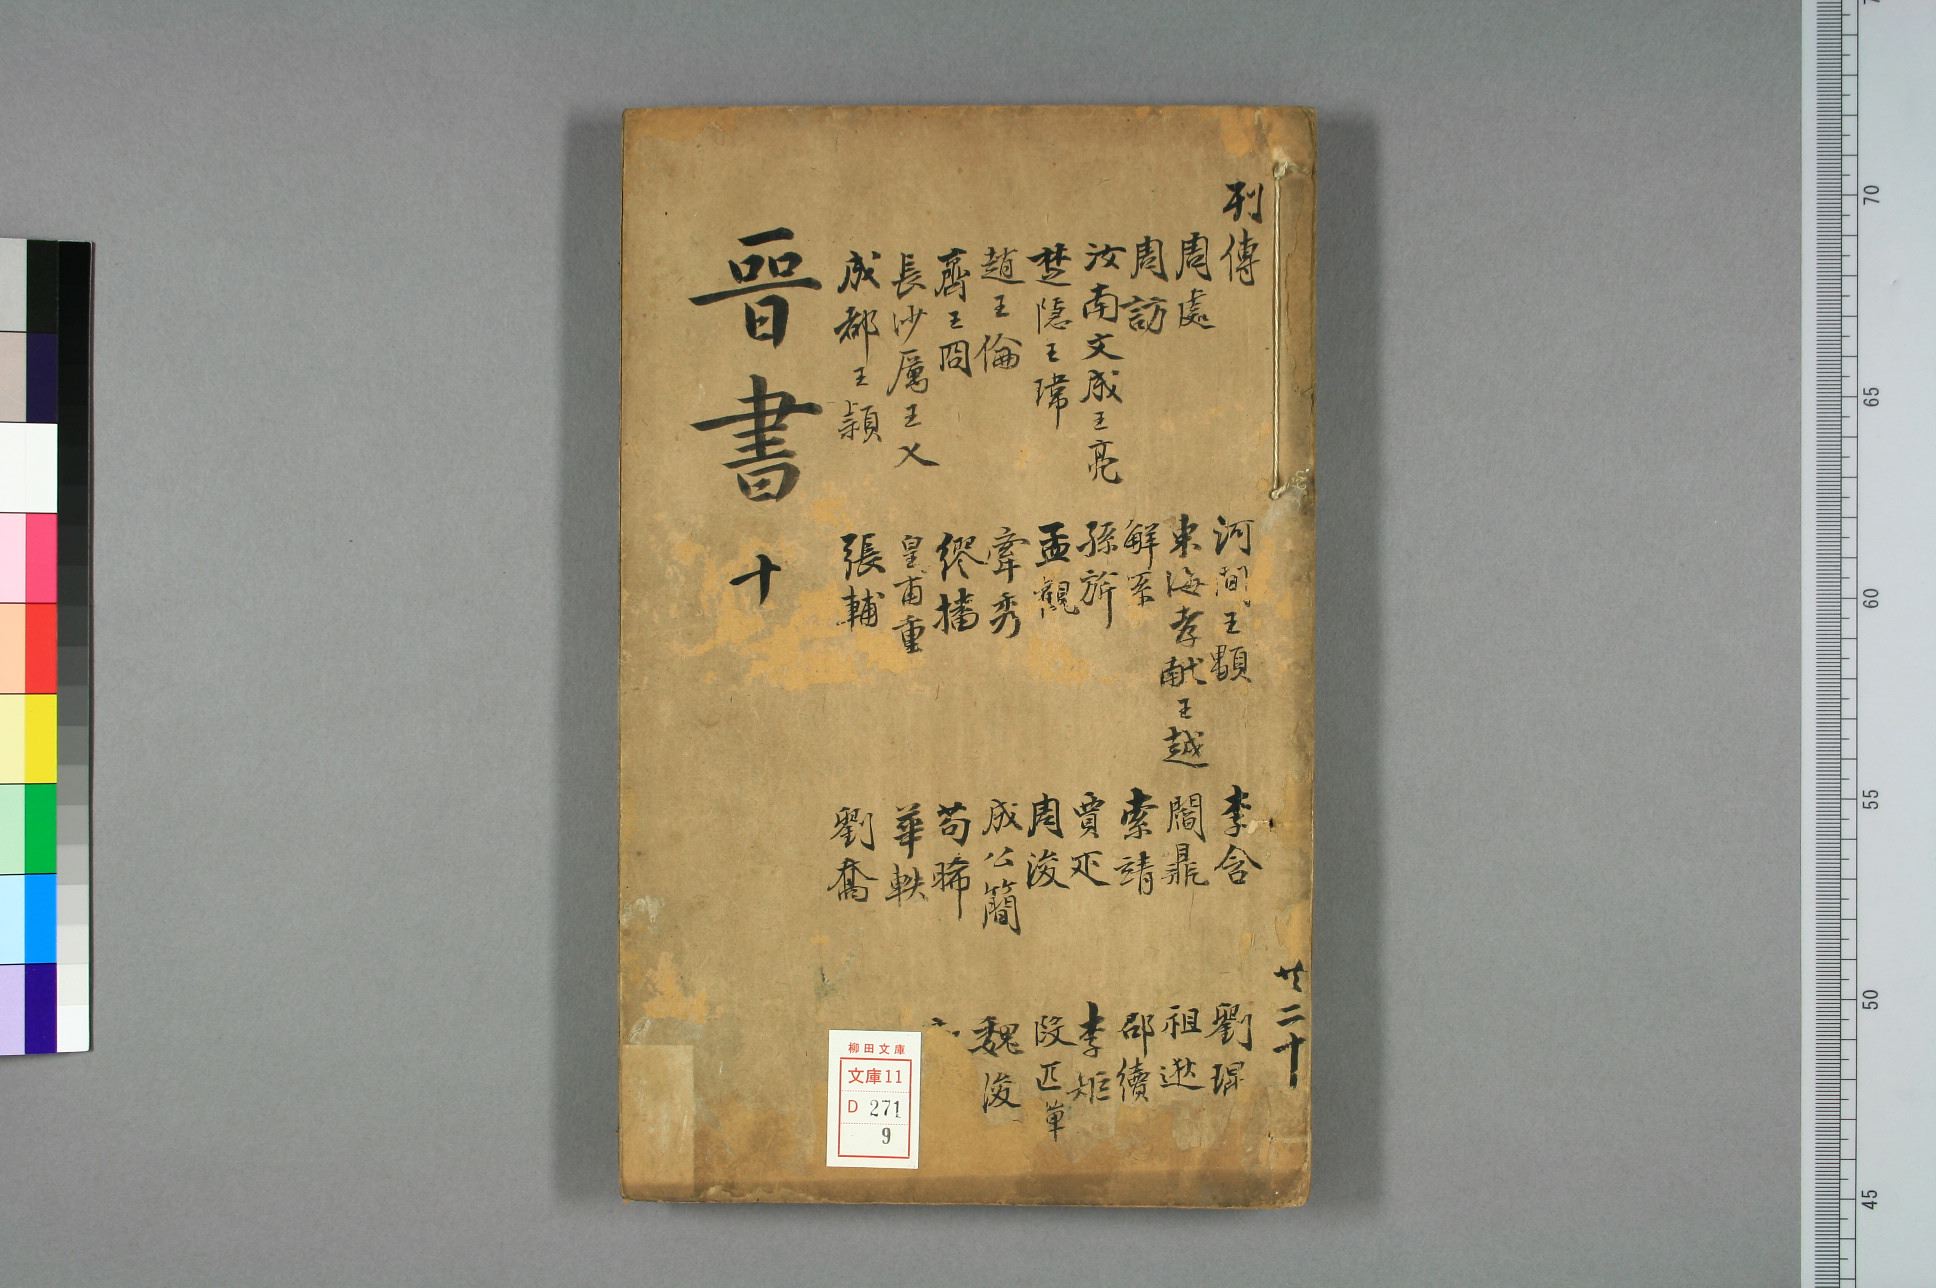 列傳
周處
周訪
汝南文成王亮
楚隱王瑋
趙王倫
齊王冏
長沙厲王乂
成都王穎
河間王顒
東海孝献王越
解系
孫旂
孟觀
牽秀
繆播
皇甫重
張輔
李含
閻鼎
索靖
賈疋
周浚
成公簡
苟晞
華軼
劉喬
劉琨
祖逖
邵續
李矩
段匹單
魏浚
晉書 十
共二十
柳田文庫
文庫11
D 271
9
70
65
60
55
50
45